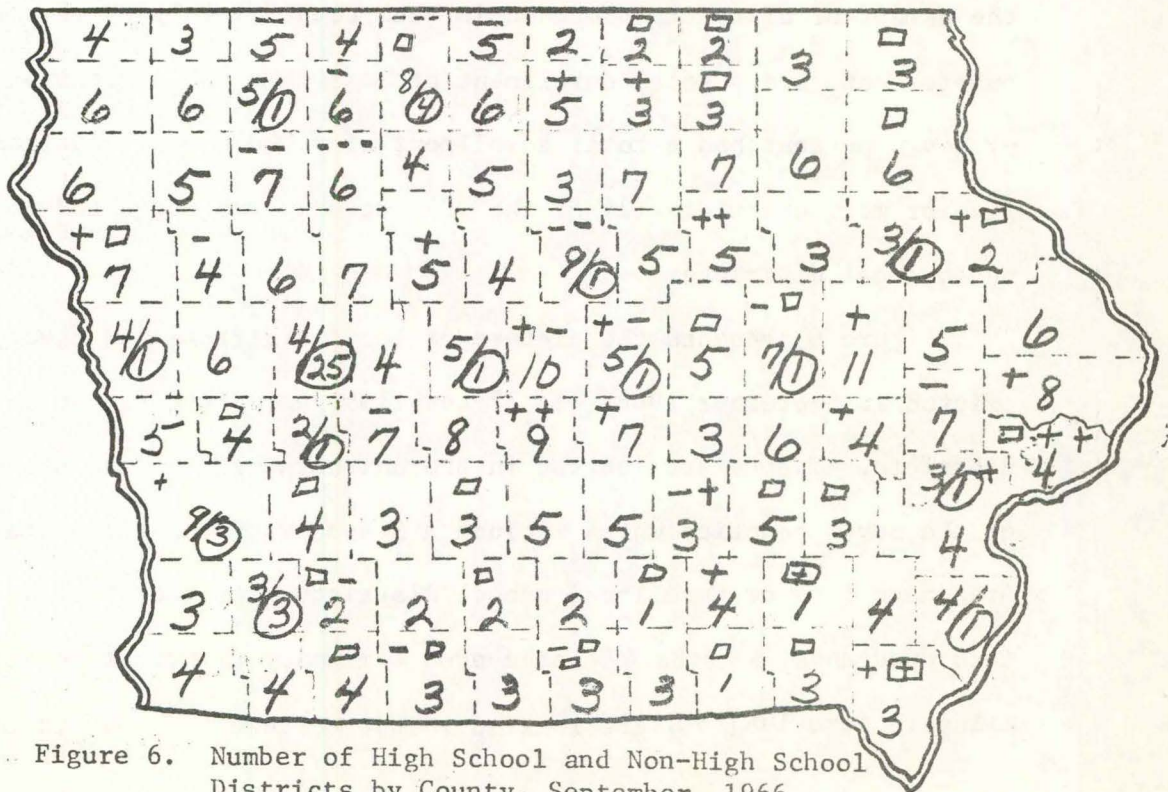 4 3 5 4 5 2 2 2 3 3
6 6 5/1 6 8/4 6 5 3 3
6 5 7 6 4 5 3 7 7 6 6
7 4 6 7 5 4 9/1 5 5 3 3/1 2
4/1 6 4/25 4 5/1 10 5/1 5 7/1 11 5 6
8
5 4 2/1 7 8 9 7 3 6 4 7 4
9/3 4 3 3 5 5 3 5 3 3/1
4
3 3/3 2 2 2 2 1 4 1 4 4/1
4 4 4 3 3 3 3 1 3 3
Figure 6. Number of High School and Non-High School
Districts by County, September, 1966